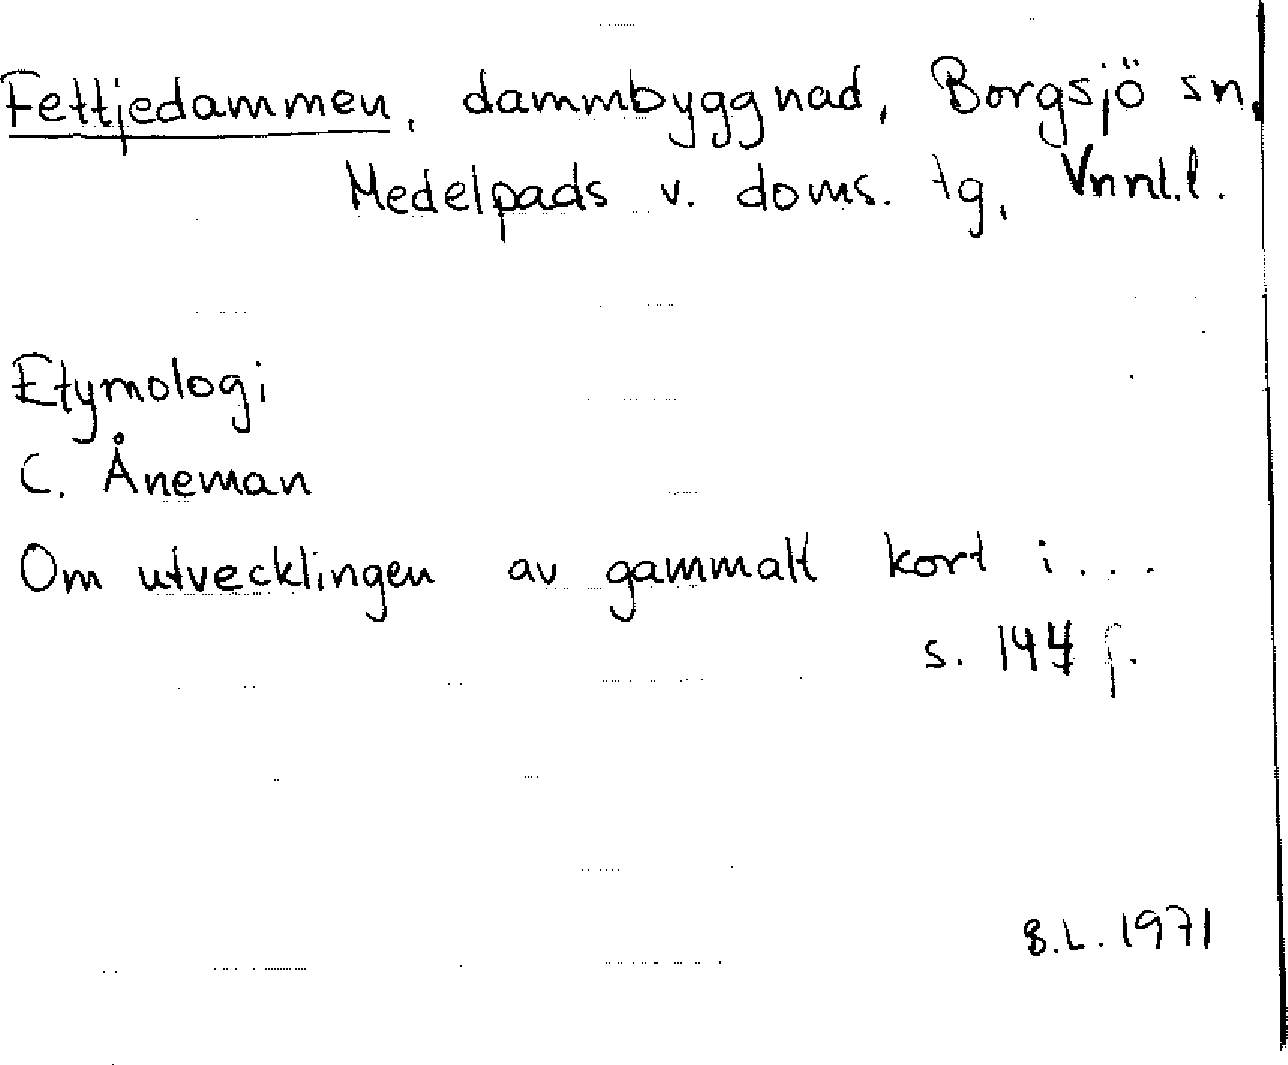 Fettjedammen, dammbyggnad, Borgsjö sn,
Medelpads v. doms. tg, Vnnl.l.
Etymologi
C. Åneman
Om utvecklingen av gammalt kort i...
s. 144 f.
B.L. 1971